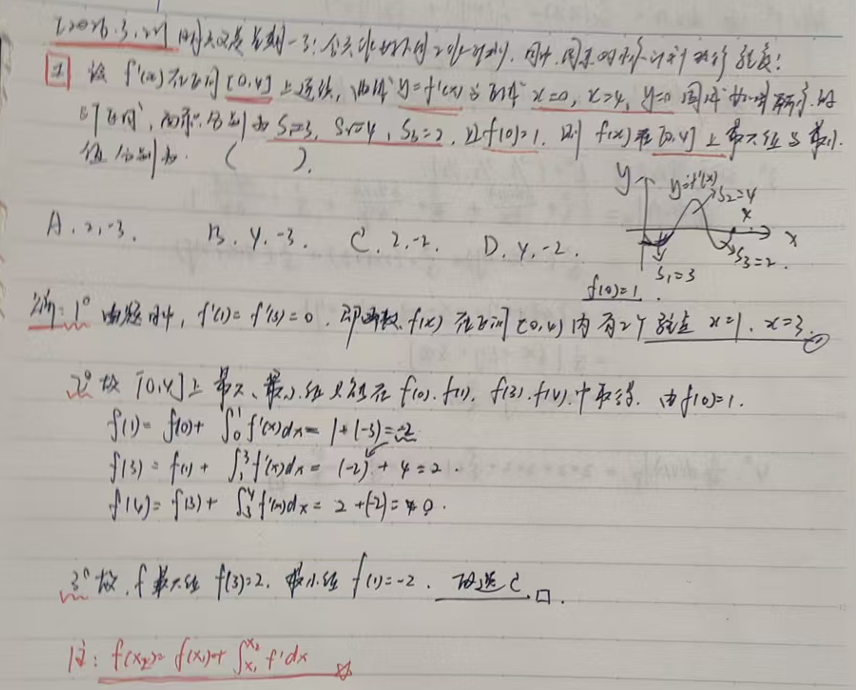 1 设 f'(x)在区间[0,4]上连续,曲线y=f'(x)与直线x=0, x=4, y=0围成如图所示的
3个区间,面积分别为S₁=3, S₂=4, S₃=2,且f(0)=1.则f(x)在[0,4]上最大值与最小
值分别为.( ).
A. 2,-3. B. 4,-3. C. 2,-2. D. 4,-2.
y
y=f'(x)
S₂=4
x
S₁=3
S₃=2.
f(0)=1.
1° 由题中, f'(1)=f'(3)=0. 即函数f(x)在区间(0,4)内有2个驻点 x=1, x=3.
2° 故[0,4]上最大、最小值只能在f(0).f(1).f(3).f(4).中取得. 由f(0)=1.
f(1)= f(0)+ ∫₀¹f'(x)dx= 1+(-3)=-2
f(3)= f(1)+ ∫₁³f'(x)dx= (-2)+4=2.
f(4)= f(3)+ ∫₃⁴f'(x)dx= 2+(-2)=0.
3° 故,f最大值 f(3)=2. 最小值 f(1)=-2. 故选C.□.
注: f(x₂)= f(x₁)+ ∫ₓ₁ˣ² f'dx ☆